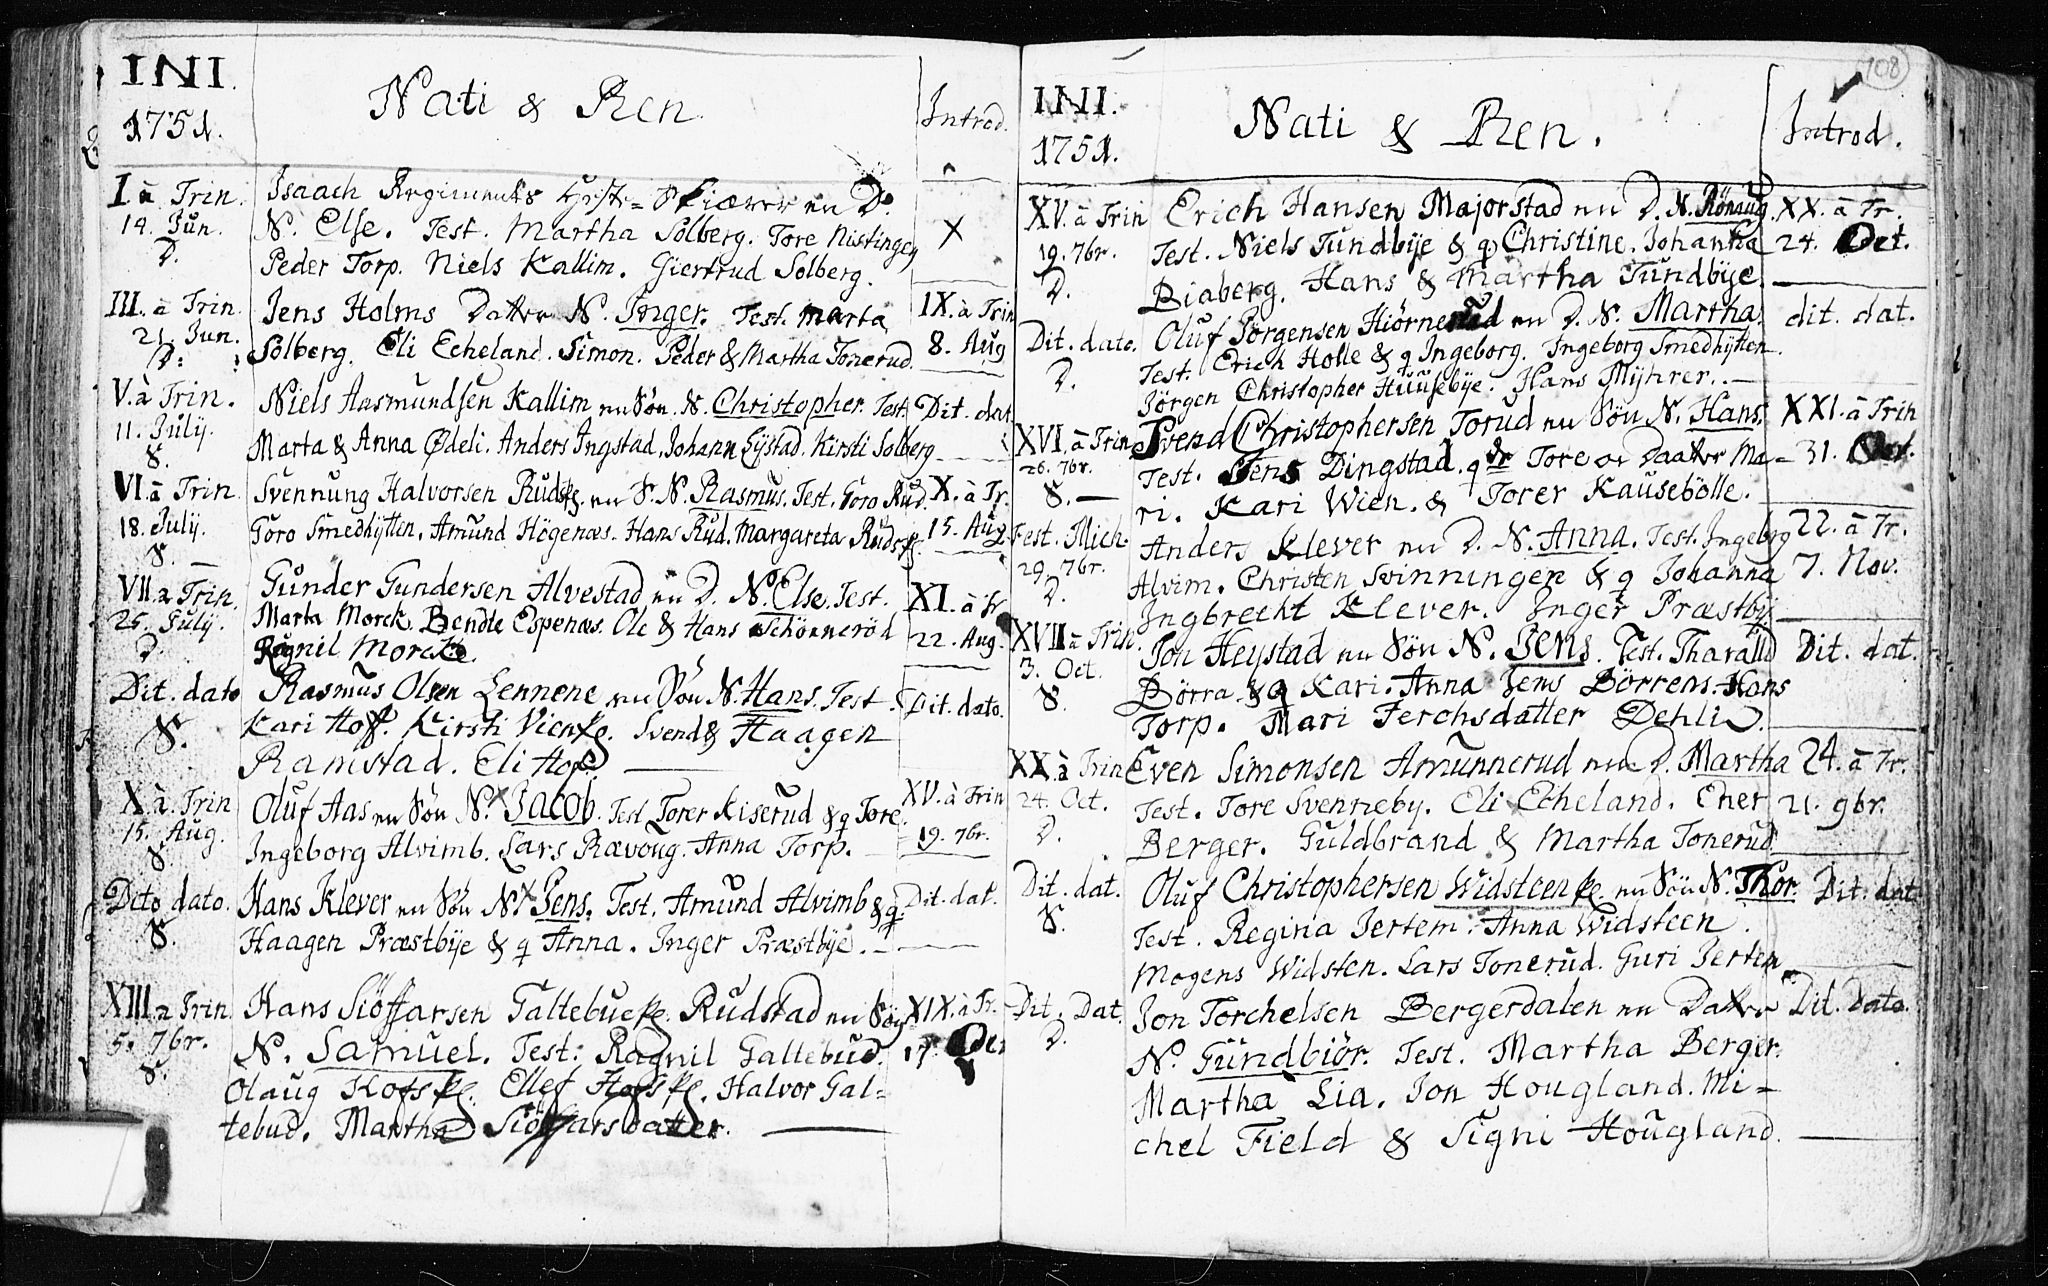 INI.
1751.
Nati & Ren.
Introd.
I à Trin.
14. Jun.
D.
Isaach Regiments en D.
N. Else. Test. Martha Solberg. Tore Nistingen
Peder Torp. Niels Kallim. Giertrud Solberg.
X
III. à Trin.
21. Jun.
D.
Jens Holms Datter N. Inger. Test. Marta
Solberg. Eli Echeland. Simon. Peder & Martha Tonerud.
IX. à Trin
8. Aug
V. à Trin.
11. July.
S.
Niels Aasmundsen Kallim en Søn. N. Christopher. Test.
Marta & Anna Ødeli. Anders Ingstad. Johann Lystad. Kirsti Solberg
Dit. dat.
VI. à Trin.
18. July.
S.
Svennung Halvorsen Rudsk. en S. N. Rasmus. Test. Goro Rud.
Goro Smedhytten. Amund Högenæs. Hans Rud. Margareta Rudsk.
X. à Tr.
15. Aug.
VII à Trin.
25. July.
D.
Gunder Gundersen Alvestad en D. N. Else. Test.
Marta Morck. Bendte Espenæs. Ole & Hans Schönneröd
Ragnil Morck.
XI. à Tr
22. Aug.
Dit. dato
S.
Rasmus Olsen Lennene en Søn N. Hans. Test.
Kari Hoff. Kirsti Viensk. Svend & Haagen
Ramstad. Eli Hof.
Dit. dato.
X à. Trin
15. Aug.
S.
Oluf Aas en Søn N. Jacob. Test Torer Kiserud & q Tore.
Ingeborg Alvimb. Lars Rævoug. Anna Torp.
XV. à Trin
19. 7br.
Dito dato.
S.
Hans Klever en Søn N. Jens. Test. Amund Alvimb & q.
Haagen Præstbye & q Anna. Inger Præstbye.
Dit. dat.
XIII à Trin.
5. 7br.
S.
Hans Siöffarsen Galtebuesk. Rudstad en Søn
N. Samuel. Test. Ragnil Galtebud.
Olaug Hofsk. Ellef Hofsk. Halvor Gal-
tebud. Martha Siöffarsdatter.
XIX. à Tr.
17. Oct
108
INI.
1751.
Nati & Ren.
Introd.
XV. à Trin
19. 7br.
D.
Erich Hansen Majorstad en D. N. Rönaug.
Test. Niels Tundbye & q Christine. Johanna
Biaberg. Hans & Martha Tundbye.
XX. à Tr.
24. Oct.
Dit. dato.
D.
Oluf Jörgensen Hiörnerud en D. N. Martha.
Test. Erich Holle & q Ingeborg. Ingeborg Smedhytten.
Jörgen Christopher Huusebye. Hans Myhrer.
dit. dat.
XVI. à Trin
26. 7br.
S.
Svend Christophersen Torud en Søn N. Hans.
Test. Jens Dingstad. q Tore Daatter Ma-
ri. Kari Wien. & Torer Kausebölle.
XXI. à Trin
31. Oct.
Fest. Mich.
29. 7br.
D.
Anders Klever en D. N. Anna. Test. Ingebrg
Alvim. Christen Svinningen & q Johanna
Ingbrecht Klever. Inger Præstby.
22. à Tr.
7. Nov.
XVII à Trin.
3. Oct.
S.
Jon Heystad en Søn N. Jens. Test. Tharalld
Börra & q Kari. Anna Jens Börrens. Hans
Torp. Mari Ferchsdatter Dehli.
Dit. dat.
XX. à Trin
24. Oct.
D.
Even Simonsen Amunnerud en D. Martha
Test. Tore Svenneby. Eli Echeland. Ener
Berger. Guldbrand & Martha Tonerud
24. à Tr.
21. 9br.
Dit. dat.
S.
Oluf Christophersen Widsteensk. en Søn N. Thor.
Test. Regina Jertem. Anna Widsteen.
Mogens Widsten. Lars Tonerud. Guri Jerten
Dit. dat
Dit. Dat.
D.
Jon Torchelsen Bergerdalen en Datter
N. Gundbiör. Test. Martha Berger.
Martha Lia. Jon Hougland. Mi-
chel Field & Signi Hougland.
Dit. Dato.